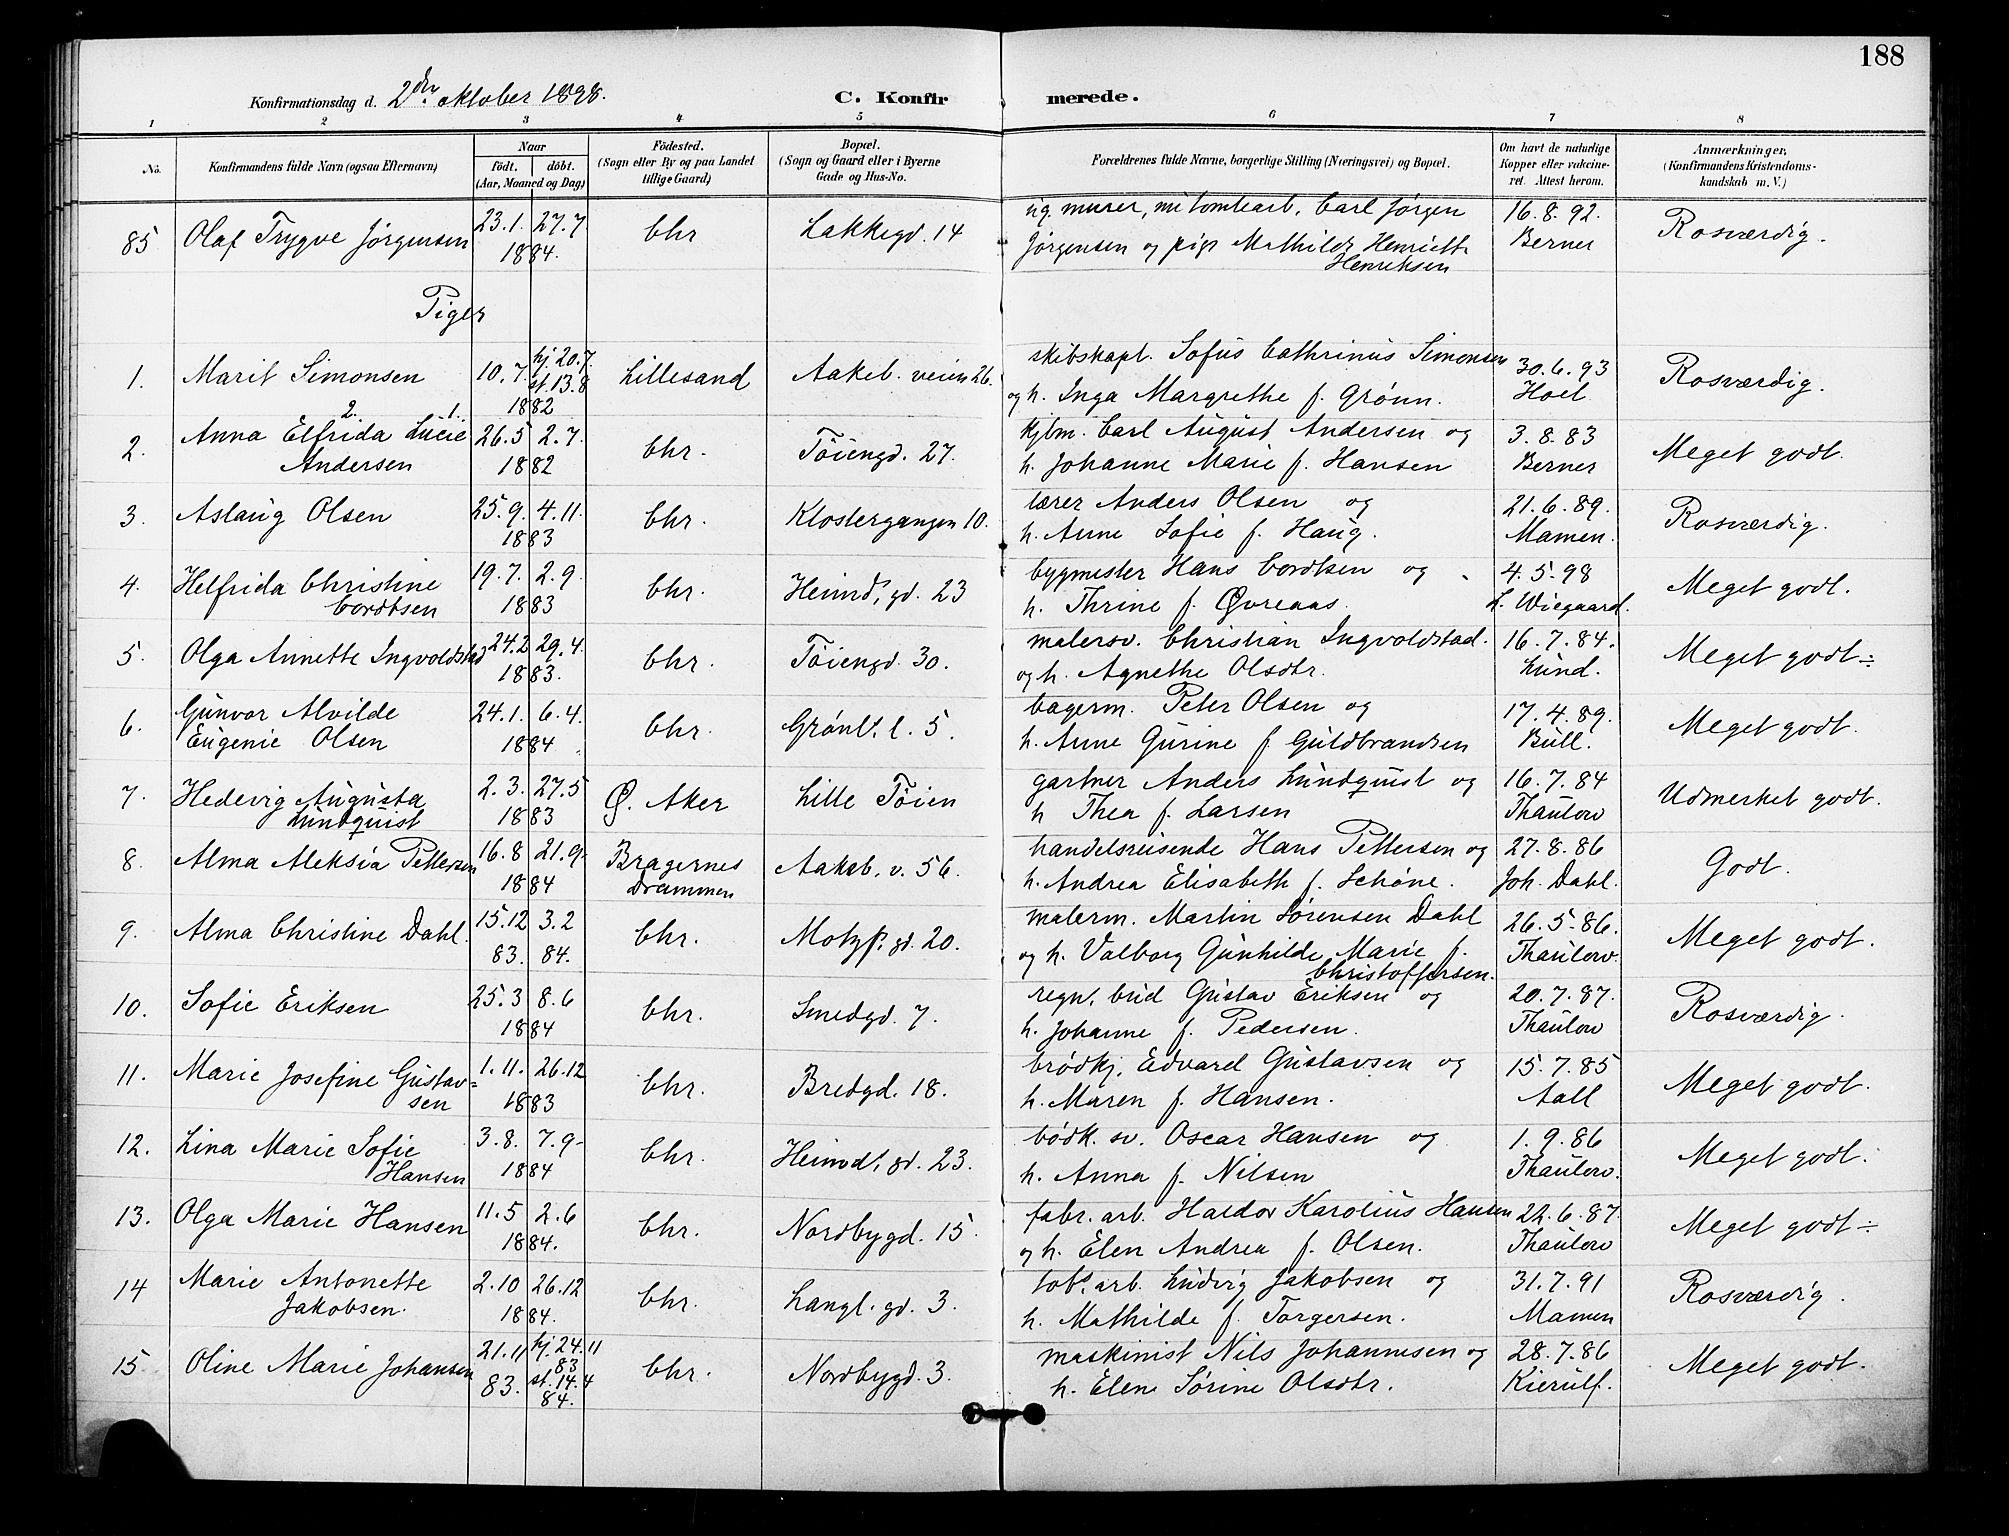 188
Konfirmationsdag d. 2den oktober 1898.
C. Konfirmerede.
1 2 3 4 5 6 7 8
No.
Konfirmandens fulde Navn (ogsaa Efternavn)
Naar
født. døbt.
(Aar, Maaned og Dag)
Fødested.
(Sogn eller By og paa Landet
tillige Gaard)
Bopæl.
(Sogn og Gaard eller i Byerne
Gade og Hus-No.
Forældrenes fulde Navne, borgerlige Stilling (Næringsvei) og Bopæl.
Om havt de naturlige
Kopper eller vakcine-
ret. Attest herom.
Anmærkninger,
(Konfirmandens Kristendoms-
kundskab m. V.)
85 Olaf Trygve Jørgensen 23.1. 27.7. 1884. Chr Lakkegd. 14
ug. murer, nu tomtearb. Carl Jørgen
Jørgensen og pige Mathilde Henriette
Henriksen
16.8.92. Berner Rosværdig.
Piger
1. Marit Simonsen 10.7. hj. 20.7. st. 13.8 1882 Lillesand Aakeb. veien 26.
skibskapt. Sofus Cathrinus Simonsen
og h. Inga Margrethe f. Grönn.
30.6.93 Hoel Rosværdig.
2. Anna Elfrida Lucie 2. 1.
Andersen 26.5 2.7. 1882 Chr. Töiengd. 27.
kjbm. Carl August Andersen og
h. Johanne Marie f. Hansen
3.8.83 Berner Meget godt.
3. Aslaug Olsen 25.9. 4.11. 1883 Chr. Klostergangen 10.
lærer Anders Olsen og
h. Anne Sofie f. Haug.
21.6.89. Mamen. Rosværdig.
4. Helfrida Christine
Cordtsen 19.7. 2.9. 1883 Chr. Heimd. gd. 23
bygmester Hans Cordtsen og
h. Thrine f. Øvreaas.
4.5.98 L. Wiegaard. Meget godt.
5. Olga Annette Ingvoldstad 24.2 29.4. 1883. Chr. Töiengd. 30.
malersv. Christian Ingvoldstad.
og h. Agnethe Olsdtr.
16.7.84. Lund. Meget godt ÷
6. Gunvor Alvilde
Eugenie Olsen 24.1. 6.4. 1884. Chr. Grönl. l. 5.
bagerm. Peter Olsen og
h. Anne Gurine f. Guldbrandsen
17.4.89. Bull. Meget godt.
7. Hedevig Augusta
Lundquist 2.3. 27.5 1883 Ø. Aker Lille Töien
gartner Anders Lundquist og
h Thea f. Larsen
16.7.84 Thaulow Udmerket godt.
8. Alma Aleksia Pettersen 16.8 21.9. 1884 Bragernes
Drammen Aakeb. v. 56.
handelsreisende Hans Pettersen og
h. Andrea Elisabeth f. Schöne.
27.8.86 Joh. Dahl. Godt.
9. Alma Christine Dahl. 15.12 83. 3.2 84. Chr. Motzf. gd. 20.
malerm. Martin Sørensen Dahl
og h. Valborg Gunhilde Marie f.
Christoffersen.
26.5.86. Thaulow. Meget godt.
10. Sofie Eriksen 25.3 8.6 1884 Chr. Smedgd. 7.
regn. bud Gustav Eriksen og
h. Johanne f. Pedersen.
20.7.87. Thaulow Rosværdig.
11. Marie Josefine Gustav=
sen 1.11. 26.12 1883 Chr. Bredgd. 18.
brödkj. Edvard Gustavsen og
h. Maren f. Hansen.
15.7.85 Aall Meget godt.
12. Lina Marie Sofie
Hansen 3.8. 7.9. 1884 Chr. Heimd. gd. 23.
bödk. sv. Oscar Hansen og
h. Anna f. Nilsen
1.9.86 Thaulow. Meget godt.
13. Olga Marie Hansen 11.5 2.6 1884. Chr. Nordbygd. 15.
fabr. arb. Haldor Karolius Hansen
og h. Elen Andrea f. Olsen.
22.6.87. Thaulow Meget godt ÷
14 Marie Antonette
Jakobsen. 2.10 26.12 1884. Chr. Langl. gd. 3.
tobs. arb. Ludvig Jakobsen og
h. Mathilde f. Torgersen.
31.7.91 Mamen Rosværdig.
15 Oline Marie Johansen 21.11 83. hj. 24.11 83 st. 14.4 84. Chr. Nordbygd. 3.
maskinist Nils Johannesen og
h. Elen Sörine Olsdtr.
28.7.86 Kierulf. Meget godt.